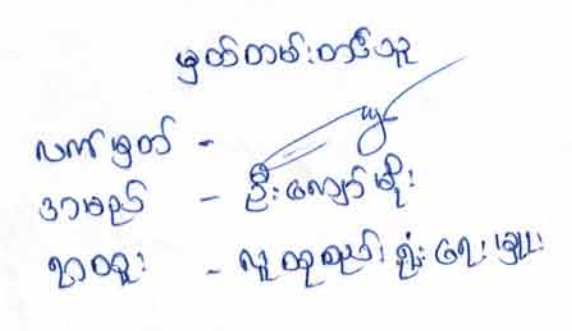 မှတ်တမ်းတင်သူ
လက်မှတ် -
အမည် - ဦးကျော်မိုး
ရာထူး - လူထုစည်းရုံးရေးမှူး